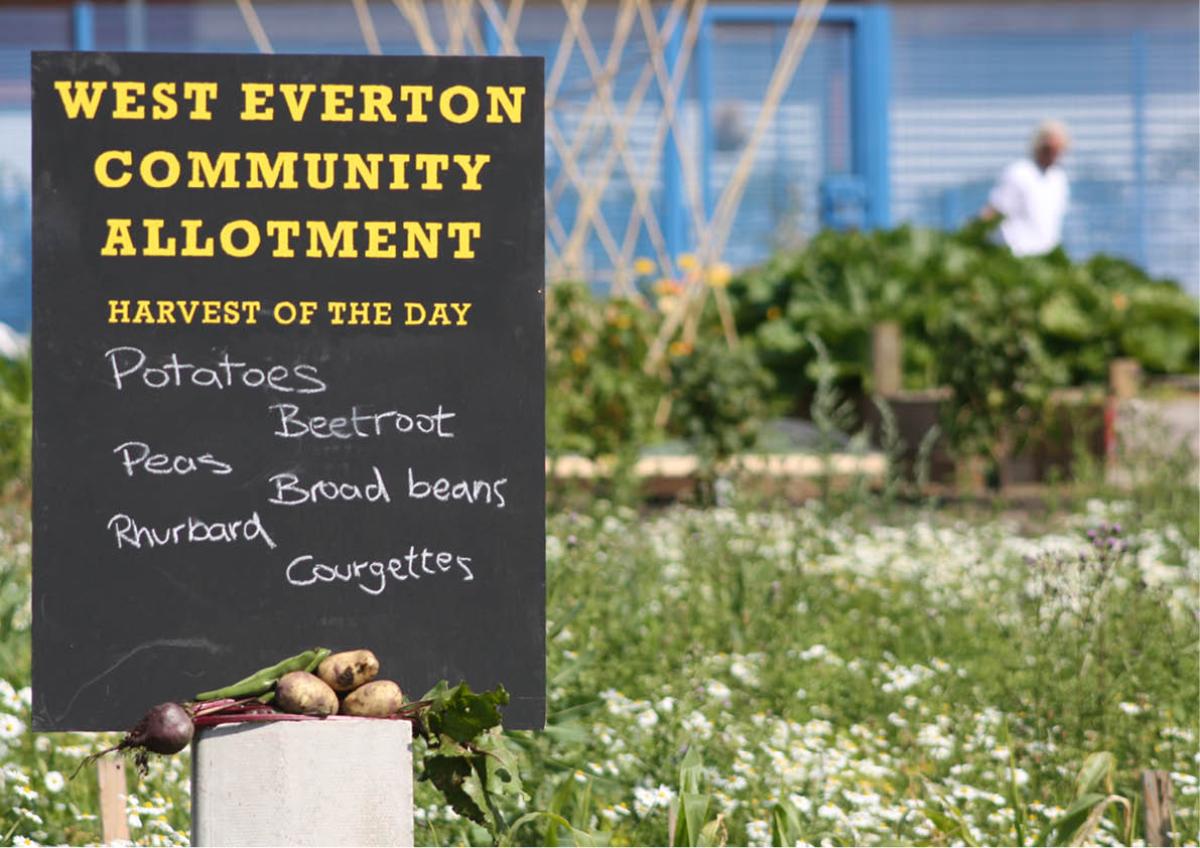 WEST EVERTON
COMMUNITY
ALLOTMENT
HARVEST OF THE DAY
Potatoes
Beetroot
Peas
Broad beans
Rhurbard
Courgettes